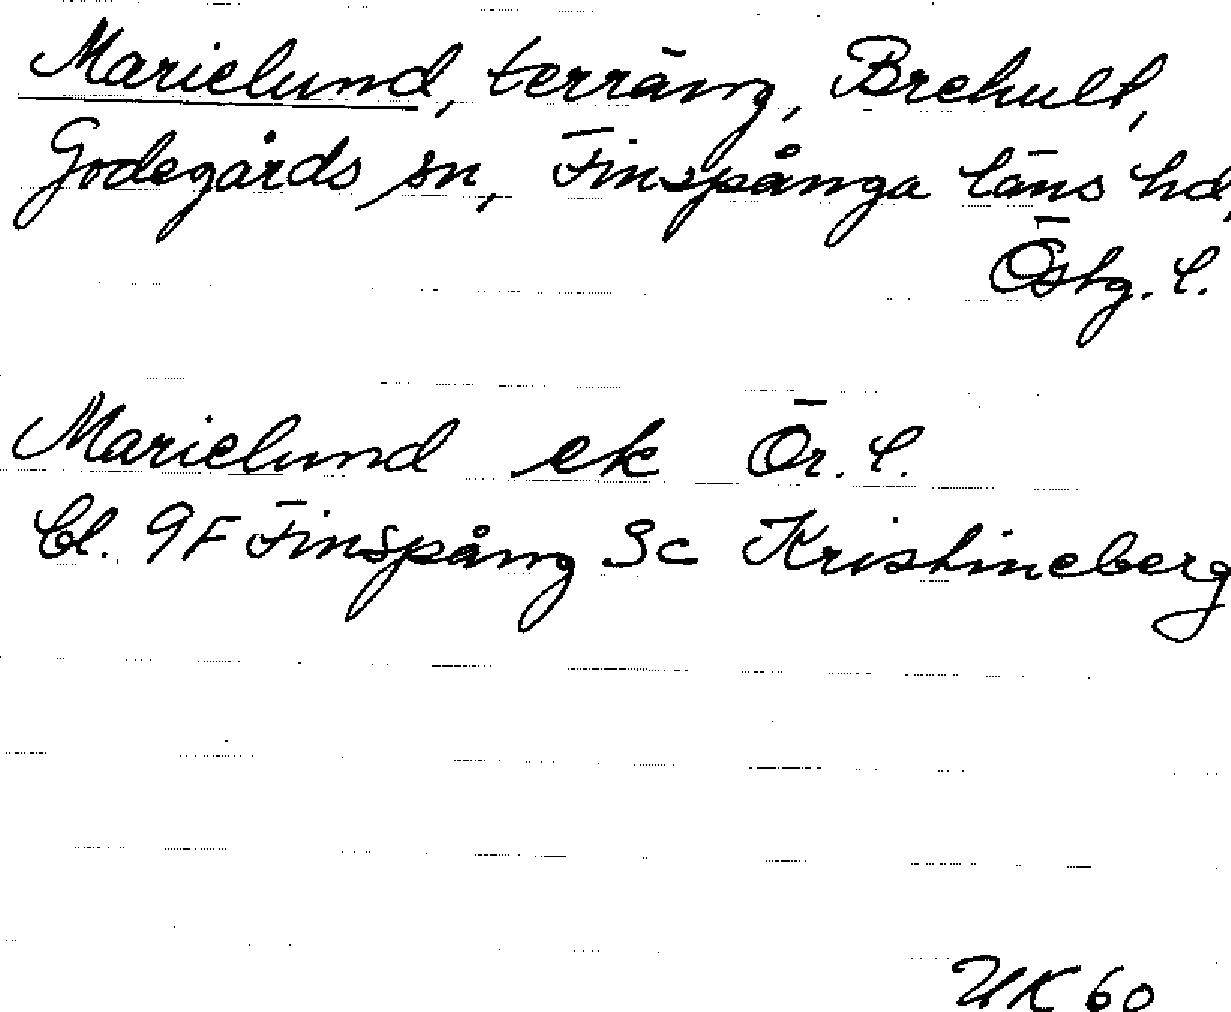 Marielund, terräng, Brehult,
Godegårds sn, Finspånga läns hd,
Östg. l.
Marielund ek Ör. l.
Bl. 9F Finspång 3c Kristineberg
UK 60